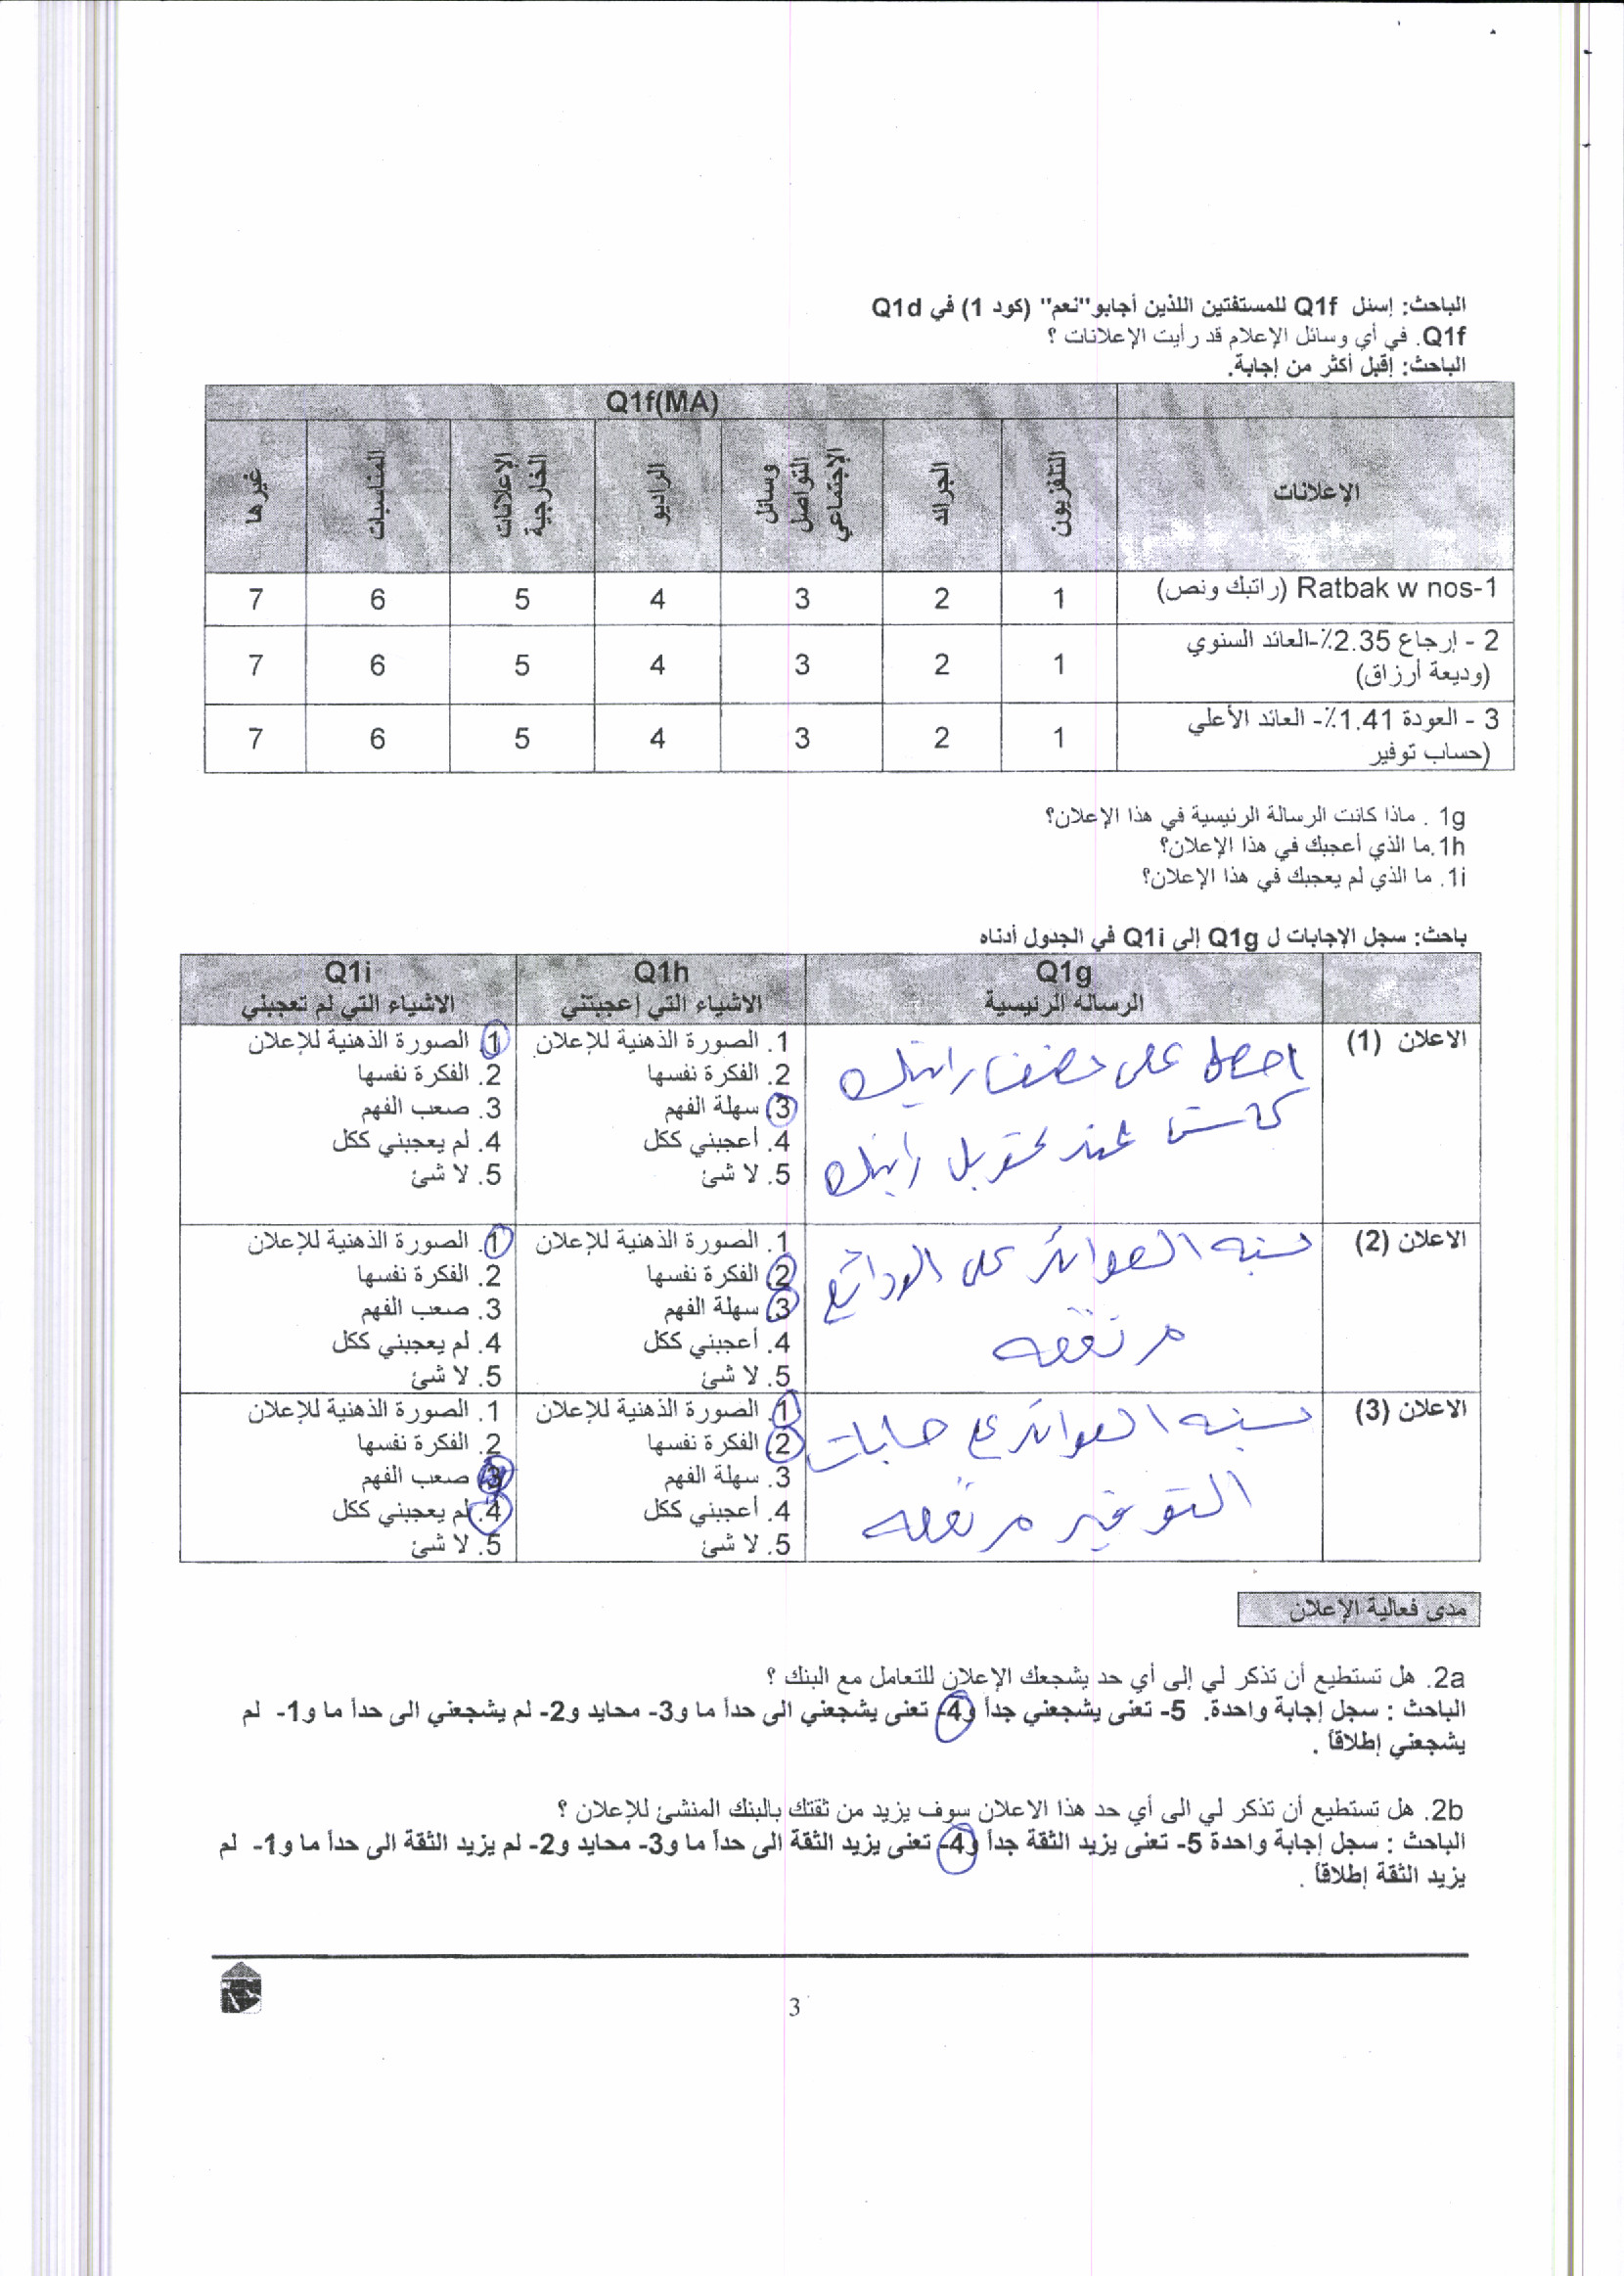 الباحث: إسئل Q1f للمستفتين اللذين أجابو"نعم" (كود 1) في Q1d
Q1f. في أي وسائل الإعلام قد رأيت الإعلانات ؟
الباحث: إقبل أكثر من إجابة.
Q1f(MA)
الإعلانات التلفزيون الجرائد وسائل التواصل الإجتماعي الراديو الإعلانات الخارجية المناسبات غيرها
1-Ratbak w nos (راتبك ونص) 1 2 3 4 5 6 7
2 - إرجاع 2.35٪-العائد السنوي
(وديعة أرزاق) 1 2 3 4 5 6 7
3 - العودة 1.41٪- العائد الأعلي
(حساب توفير 1 2 3 4 5 6 7
1g . ماذا كانت الرسالة الرئيسية في هذا الإعلان؟
1h.ما الذي أعجبك في هذا الإعلان؟
1i. ما الذي لم يعجبك في هذا الإعلان؟
باحث: سجل الإجابات ل Q1g إلى Q1i في الجدول أدناه
Q1g Q1h Q1i
الرساله الرئيسية الاشياء التي إعجبتني الاشياء التي لم تعجبني
الاعلان (1)
احصل على نصف راتبك
كاش عند تحويل راتبك
1. الصورة الذهنية للإعلان
2. الفكرة نفسها
3. سهلة الفهم
4. أعجبني ككل
5. لا شئ
1. الصورة الذهنية للإعلان
2. الفكرة نفسها
3. صعب الفهم
4. لم يعجبني ككل
5. لا شئ
الاعلان (2)
نسبه الفوائد على الودائع
مرتفعه
1. الصورة الذهنية للإعلان
2. الفكرة نفسها
3. سهلة الفهم
4. أعجبني ككل
5. لا شئ
1. الصورة الذهنية للإعلان
2. الفكرة نفسها
3. صعب الفهم
4. لم يعجبني ككل
5. لا شئ
الاعلان (3)
نسبه الفوائد على حسابات
التوفير مرتفعه
1. الصورة الذهنية للإعلان
2. الفكرة نفسها
3. سهلة الفهم
4. أعجبني ككل
5. لا شئ
1. الصورة الذهنية للإعلان
2. الفكرة نفسها
3. صعب الفهم
4. لم يعجبني ككل
5. لا شئ
مدى فعالية الإعلان
2a. هل تستطيع أن تذكر لي إلى أي حد يشجعك الإعلان للتعامل مع البنك ؟
الباحث : سجل إجابة واحدة. 5- تعنى يشجعني جداً و4- تعنى يشجعني الى حداً ما و3- محايد و2- لم يشجعني الى حداً ما و1- لم
يشجعني إطلاقاً .
2b. هل تستطيع أن تذكر لي الى أي حد هذا الاعلان سوف يزيد من ثقتك بالبنك المنشئ للإعلان ؟
الباحث : سجل إجابة واحدة 5- تعنى يزيد الثقة جداً و4- تعنى يزيد الثقة الى حداً ما و3- محايد و2- لم يزيد الثقة الى حداً ما و1- لم
يزيد الثقة إطلاقاً .
3